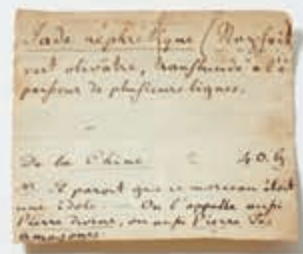 Jade néphrétique (
vert olivâtre, translucide à l'é
paisseur de plusieurs lignes.
De la Chine 40.
Il paroit que ce morceau étoit
une idole. On l'appelle aussi
Pierre divine, ou aussi Pierre des
amazones.